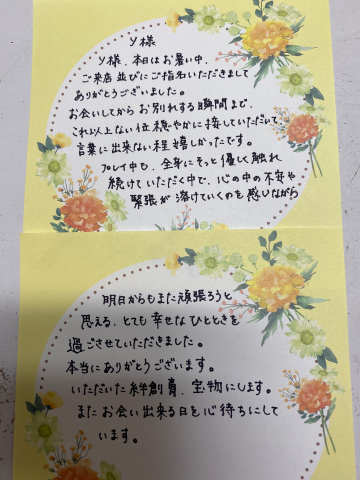 Y様
Y様、本日はお暑い中、
ご来店並びにご指名いただきまして
ありがとうございました。
お会いしてからお別れする瞬間まで、
これ以上ない位穏やかに接していただいて
言葉に出来ない程嬉しかったです。
プレイ中も、全身にそっと優しく触れ
続けていただく中で、心の中の不安や
緊張が溶けていくのを感じながら
明日からもまた頑張ろうと
思える、とても幸せなひとときを
過ごさせていただきました。
本当にありがとうございます。
いただいた絆創膏、宝物にします。
またお会い出来る日を心待ちにして
います。